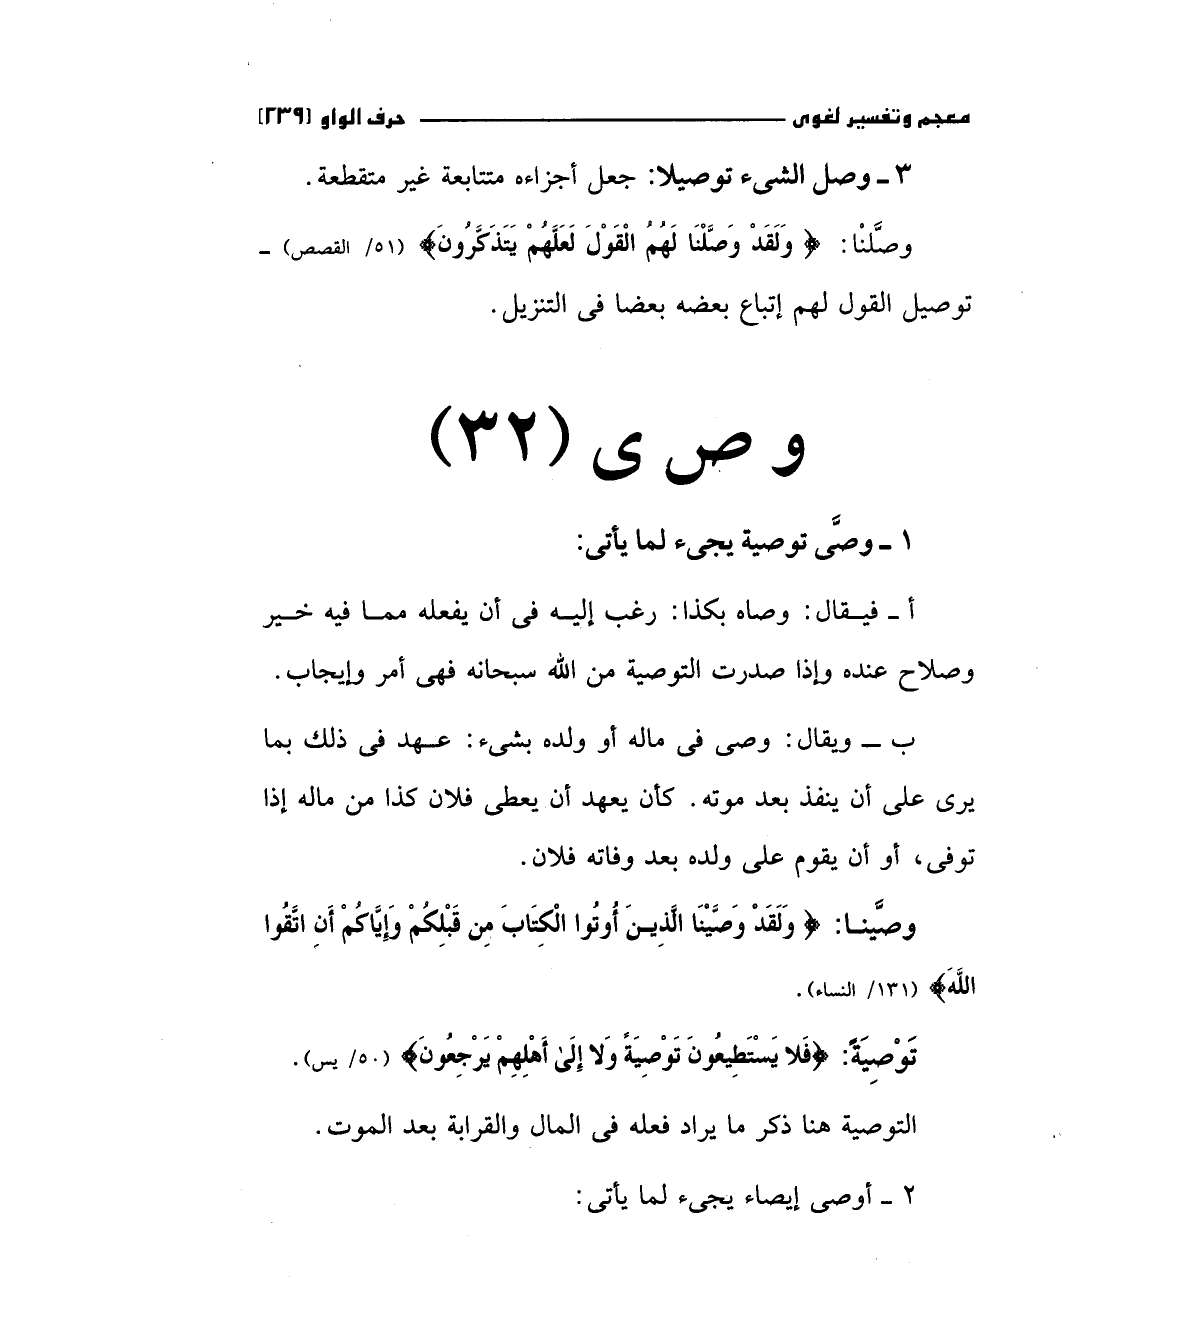 معجم وتفسير لغوى ـــــــ حرف الواو [٢٣٩]
٣ ـ وصل الشىء توصيلا: جعل أجزاءه متتابعة غير متقطعة.
وصَّلنْا: ﴿ وَلَقَدْ وَصَّلْنَا لَهُمُ الْقَوْلَ لَعَلَّهُمْ يَتَذَكَّرُونَ﴾ (٥١/ القصص) ـ
توصيل القول لهم إتباع بعضه بعضا فى التنزيل.
و ص ى (٣٢)
١ ـ وصَّى توصية يجىء لما يأتى:
أ ـ فيـقال: وصاه بكذا: رغب إليـه فى أن يفعله ممـا فيه خـير
وصلاح عنده وإذا صدرت التوصية من الله سبحانه فهى أمر وإيجاب.
ب ـ ويقال: وصى فى ماله أو ولده بشىء: عـهد فى ذلك بما
يرى على أن ينفذ بعد موته. كأن يعهد أن يعطى فلان كذا من ماله إذا
توفى، أو أن يقوم على ولده بعد وفاته فلان.
وصَّينـا: ﴿ وَلَقَدْ وَصَّيْنَا الَّذِيـنَ أُوتُوا الْكِتَابَ مِن قَبْلِكُمْ وَإِيَّاكُمْ أَنِ اتَّقُوا
اللَّهَ﴾ (١٣١/ النساء).
تَوْصِيَةً: ﴿فَلا يَسْتَطِيعُونَ تَوْصِيَةً وَلا إِلَىٰ أَهْلِهِمْ يَرْجِعُونَ﴾ (٥٠/ يس).
التوصية هنا ذكر ما يراد فعله فى المال والقرابة بعد الموت.
٢ ـ أوصى إيصاء يجىء لما يأتى: